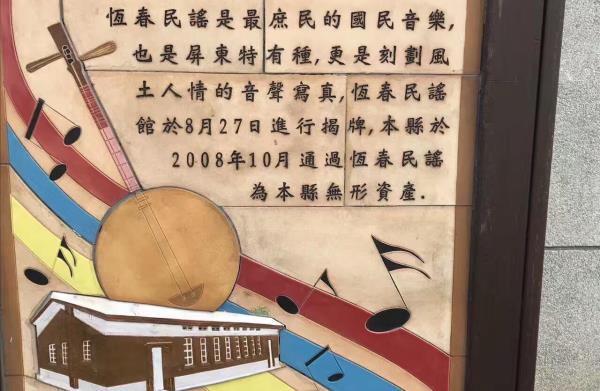 恆春民謠是最庶民的國民音樂,
也是屏東特有種,更是刻劃風
土人情的音聲寫真,恆春民謠
館於8月27日進行揭牌,本縣於
2008年10月通過恆春民謠
為本縣無形資產.